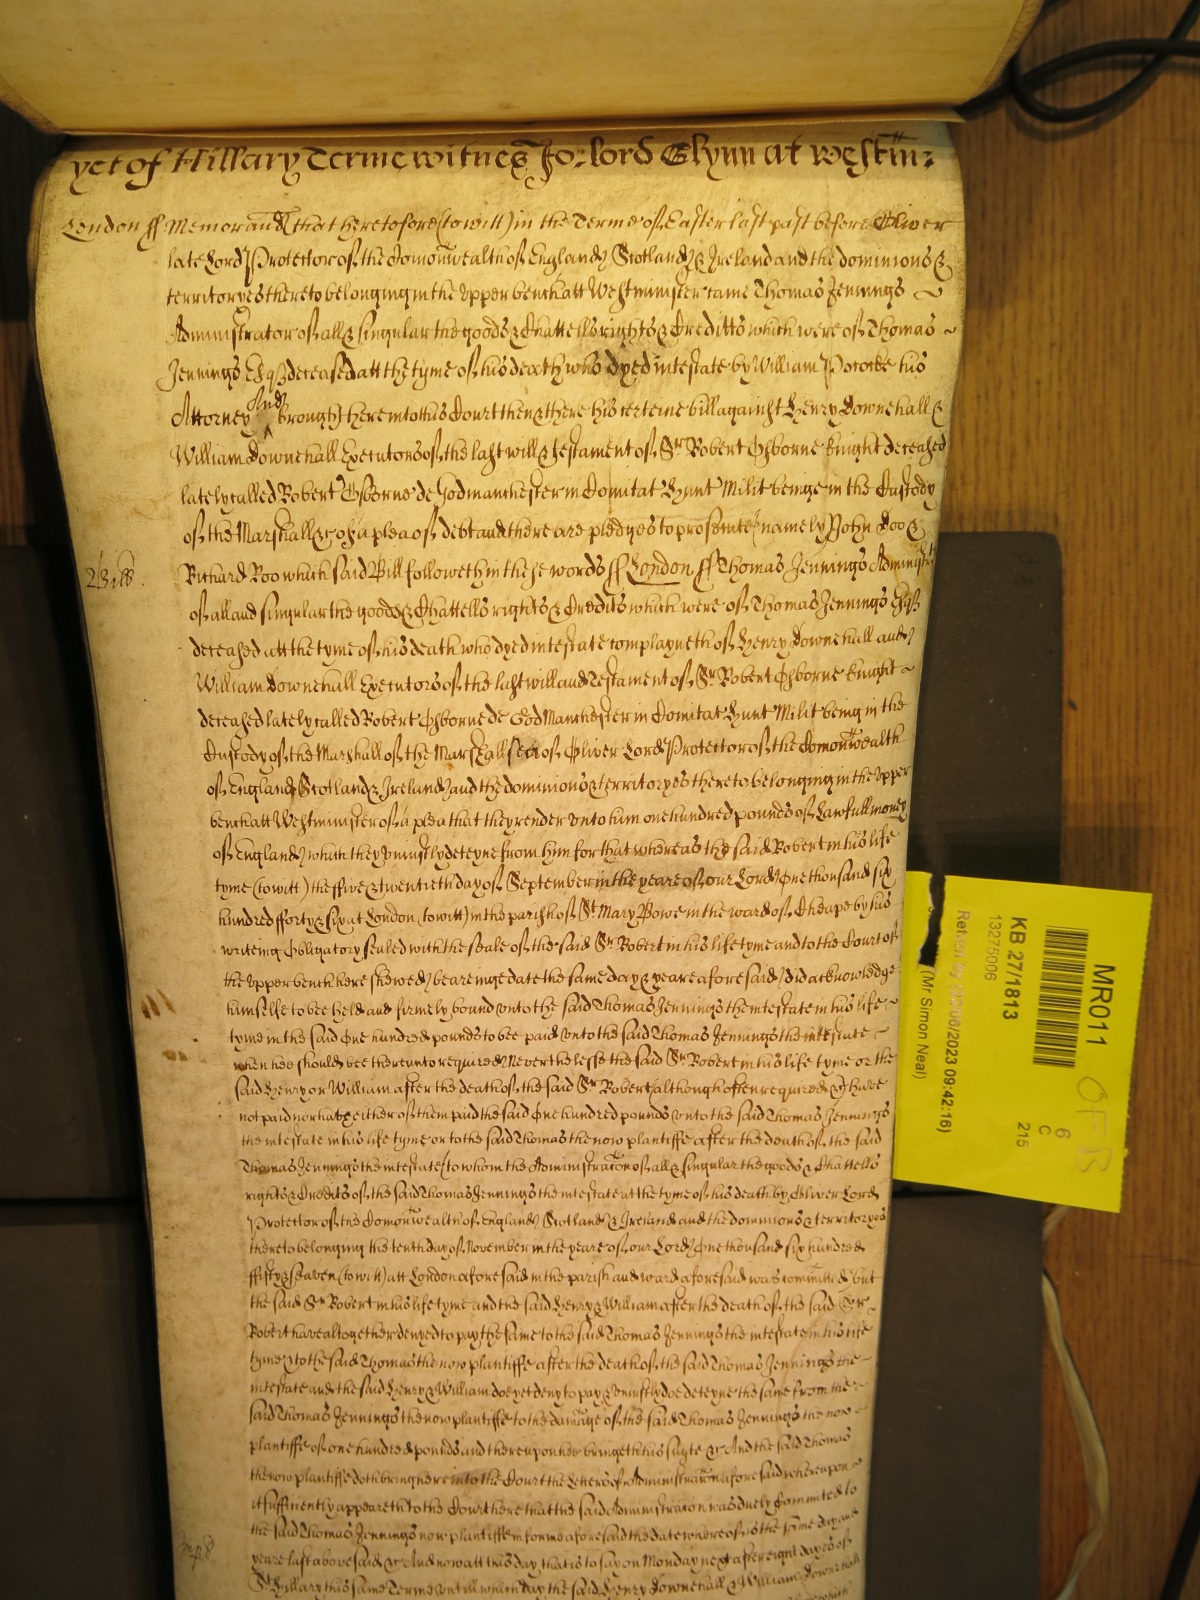 yet of Hillary Terme witnes Jo: lord Glynn at westm̄:
London ss Memorand that heretofore (to witt) in the Terme of Easter last past before Oliver
late Lord Protector of the Comonwealth of England Scotland & Ireland and the dominions &
territoryes thereto belonging in the upper bench att Westminister came Thomas Jennings
Administrator of all & singular the goods & Chattells rights & Creditts which were of Thomas
Jennings Esqr deceased att the tyme of his death who dyed intestate by William Pococke his
And
Attorney brought here into this Court then & there his certeine bill against Henry Downehall &
William Downehall Executors of the last will & testament of Sr Robert Osborne knight deceased
lately called Robert Osborne de Godmanchester in Comitat Hunt Milit beinge in the Custody
of the Marshall &c of a plea of debt and there are pledges to prosecute (namely) John Doo &
Richard Roo which said Bill followeth in these words ss London ss Thomas Jennings Administr
of all and singular the goods & Chattells rights & Credits which were of Thomas Jennings Esqr
deceased att the tyme of his death who dyed intestate complayneth of Henry Downehall and
William Downehall Executors of the last will and Testament of Sr Robert Osborne knight
deceased lately called Robert Osborne de GodManchester in Comitat Hunt Milit being in the
Custody of the Marshall of the Marshallsea of Oliver Lord Protector of the Comonwealth
of England Scotland & Ireland and the dominions & territoryes thereto belonging in the upper
bench att Westminister of a plea that they render unto him one hundred pounds of Lawfull money
of England which they uniustly deteyne from him for that whereas the said Robert in his life
tyme (to witt) the ffive & twentieth day of September in the yeare of our Lord One thousand six
hundred fforty & six at London (to witt) in the parish of St Mary Bowe in the ward of Cheape by his
writeing Obligatory sealed with the seale of the said Sr Robert in his life tyme and to the Court of
the upper bench here shewed beareinge date the same day & yeare aforesaid did acknowledge
himselfe to bee held and firmely bound unto the said Thomas Jennings the intestate in his life
tyme in the said One hundred pounds to bee paid unto the said Thomas Jennings the intestate
when hee should bee thereunto required Neverthelesse the said Sr Robert in his life tyme or the
said Henry or William after the death of the said Sr Robert (although often required &c) have
not paid nor hath either of them paid the said One hundred pounds unto the said Thomas Jennings
the intestate in his life tyme or to the said Thomas the now plantiffe after the death of the said
Thomas Jennings the intestate (to whom the Administracon of all & singular the goods & Chattells
rights & Credits of the said Thomas Jennings the intestate at the tyme of his death by Oliver Lord
Protector of the Comonwealth of England Scotland & Ireland and the dominions & territoryes
thereto belonging the tenth day of November in the yeare of our Lord One thousand six hundred
ffifty & seaven (to witt) att London aforesaid in the parish and ward aforesaid was comitted) but
the said Sr Robert in his life tyme and the said Henry & William after the death of the said Sr
Robert have altogether denyed to pay the same to the said Thomas Jennings the intestate in his life
tyme & to the said Thomas the now plantiffe after the death of the said Thomas Jennings the
intestate and the said Henry & William doe yet deny to pay & uniustly doe deteyne the same from the
said Thomas Jennings the now plantiffe to the damage of the said Thomas Jennings the now
plantiffe of one hundred pounds and thereupon hee bringeth his suyte &c And the said Thomas
the now plantiffe doth bring here into the Court the Letters of Administracon aforesaid whereupon
it sufficiently appeareth to the Court here that the said Administracon was duely Comitted to
the said Thomas Jennings now plantiffe in forme aforesaid the date whereof is the same day and
yeare last abovesaid &c And now att this day that is to say on Monday next after eight dayes of
St Hillary this same Terme untill which day the said Henry Downehall & William Downehall
MR011
KB 27/1813
13275006
6
C
215
OFB
(Mr Simon Neal)